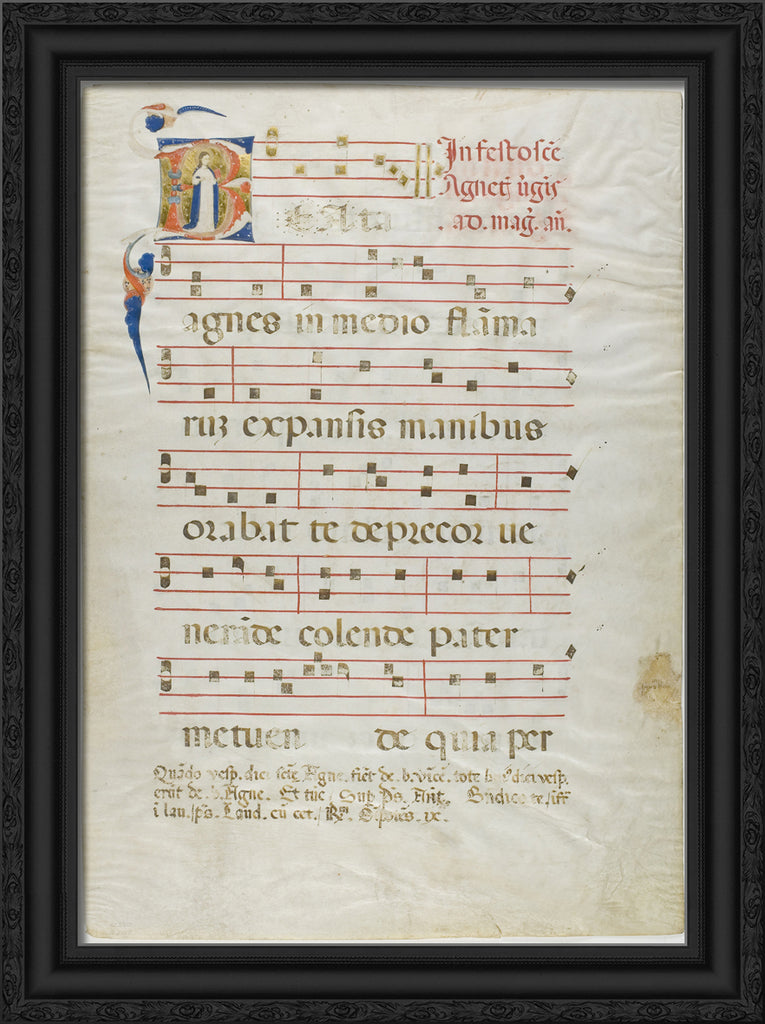 In festo scē
Agnet̄ ūgīs
. ad. maḡ. an̄.
BEAta
agnes in medio flāma
ruꝫ expansis manibus
orabat te deprecor ue
nerāde colende pater
metuen de quia per
Quādo vesp. diei scē Agne. fiēt de. b. vīcē. tote
erūt de. b. Agne. Et tūc / Sub p̄s. Ant.
ī lau. / p̄s. Laud. cū cet. /